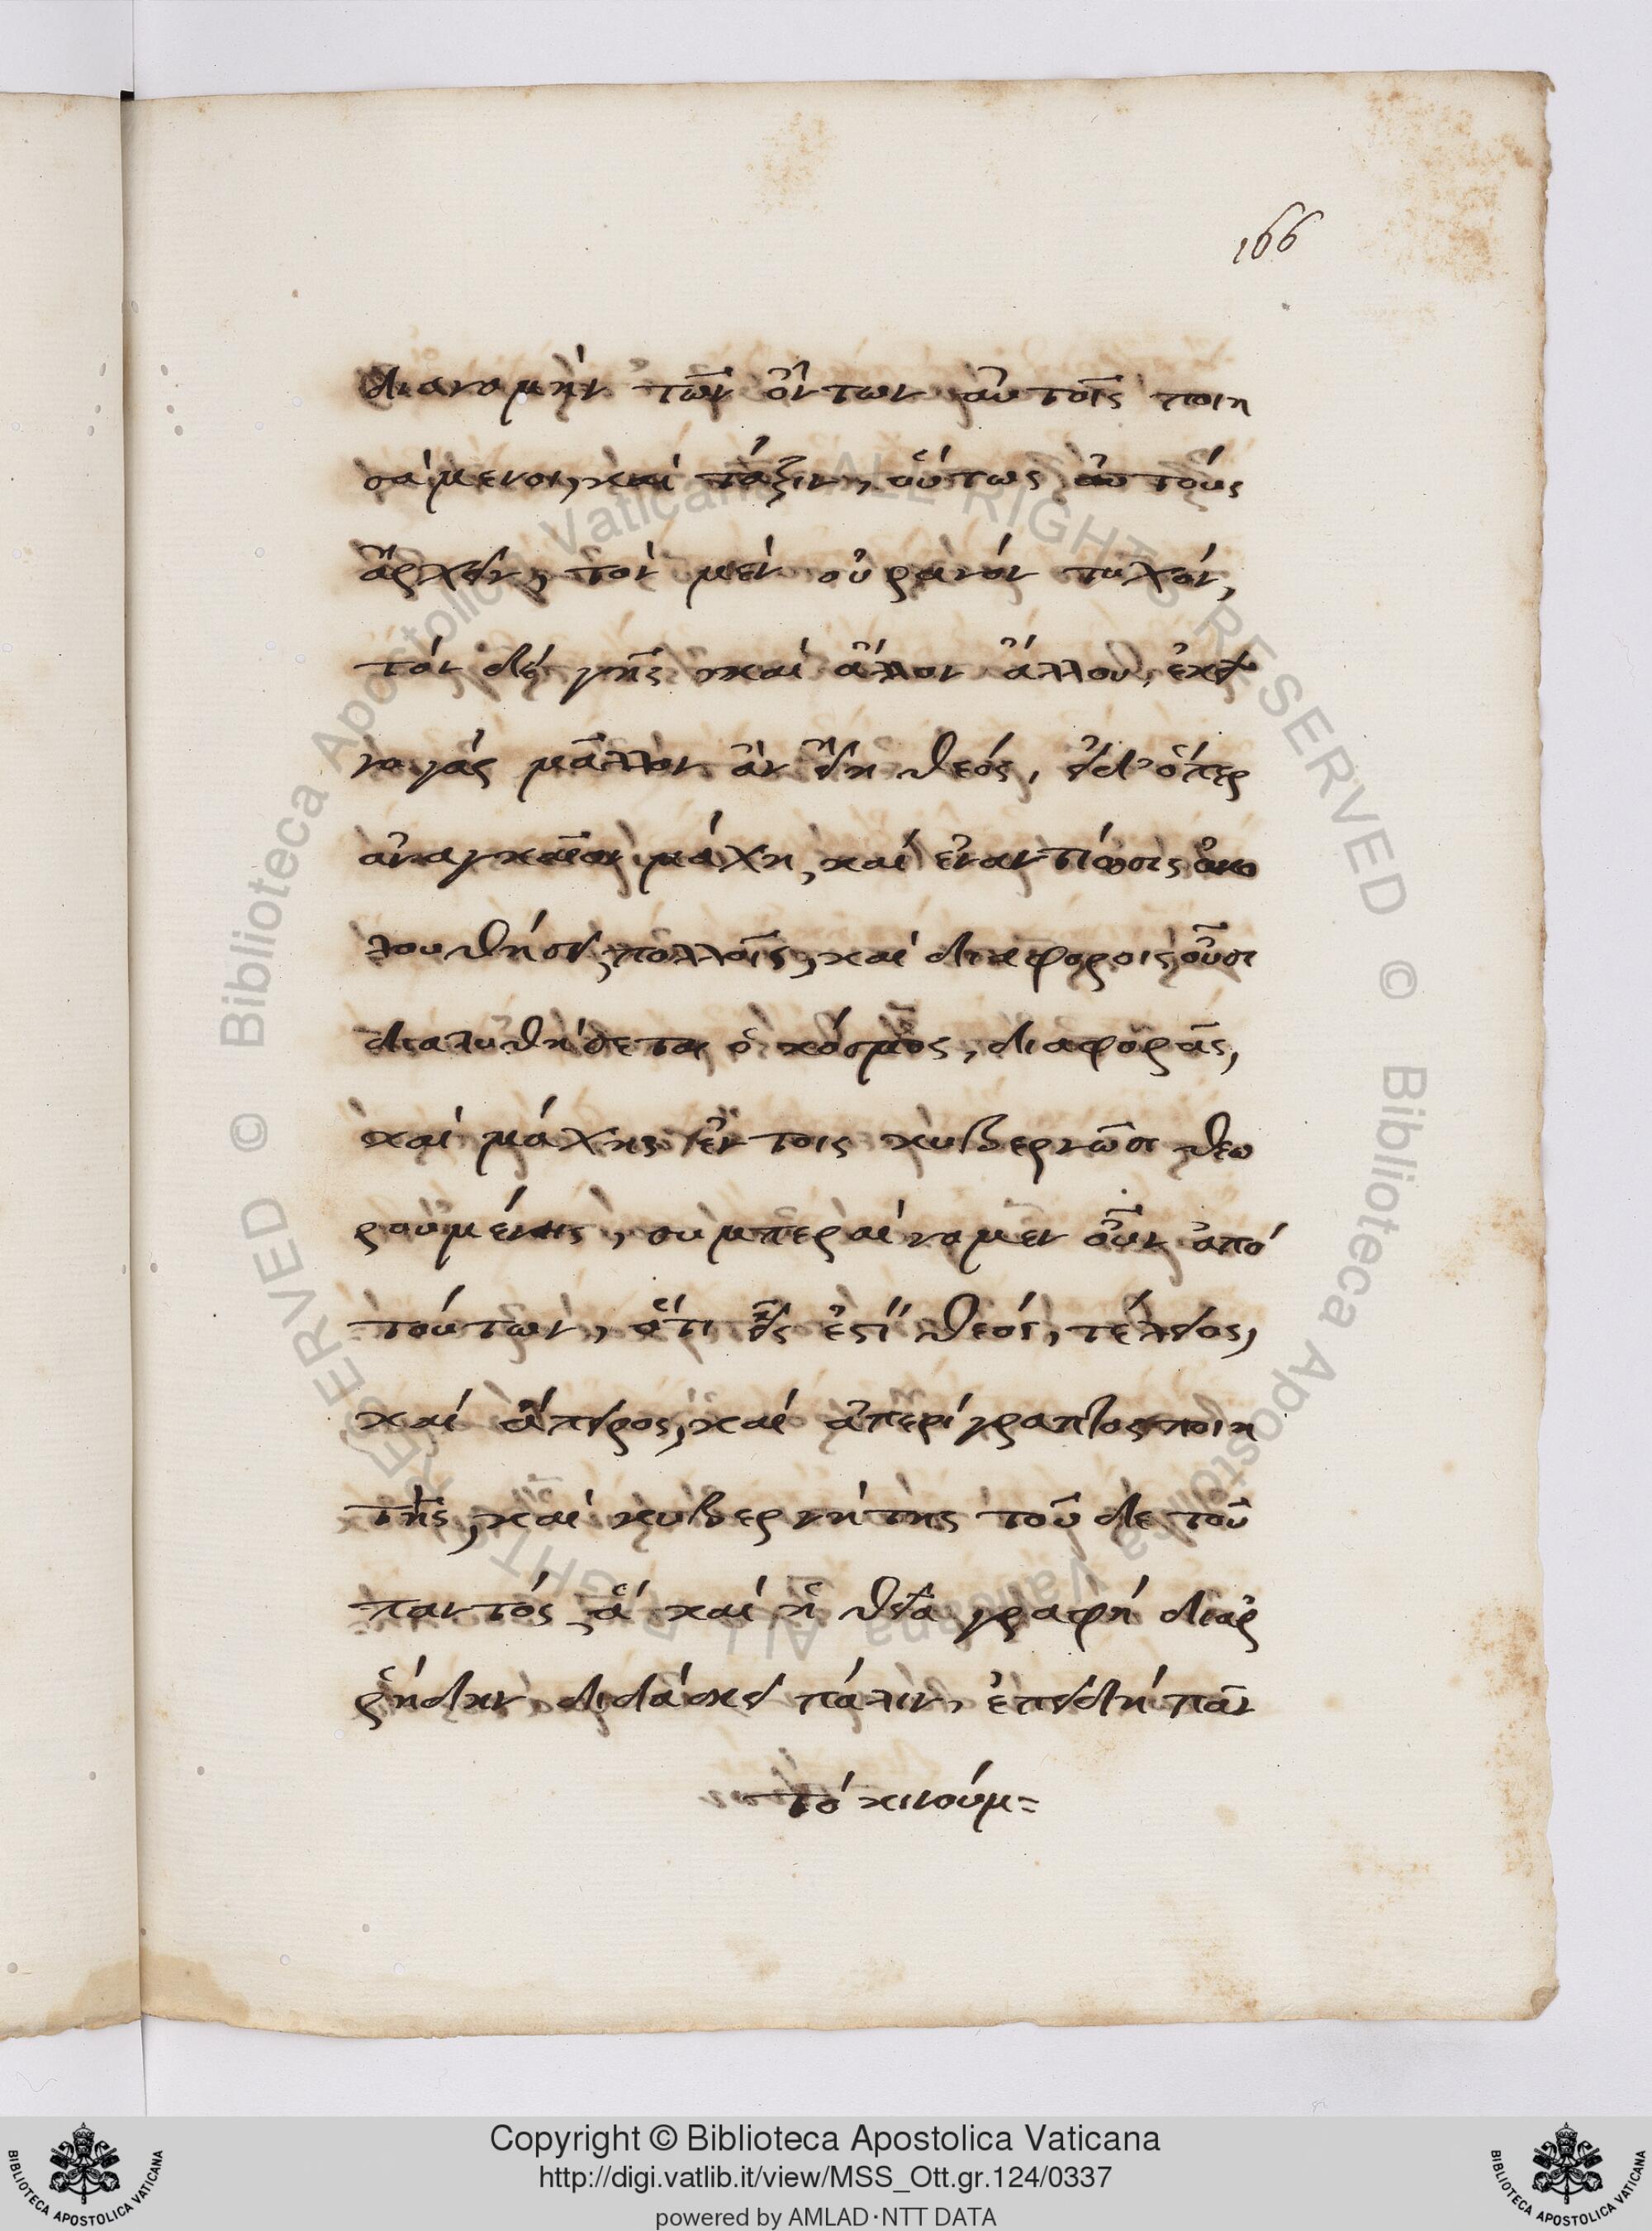 166
διανομὴν τῶν ὄντων αὐτοῖς ποιη
σάμενοι, καὶ τάξιν, οὕτως αὐτοὺς
ἄρχειν, τὸν μὲν οὐρανὸν τυχόν,
τὸν δὲ γῆς καὶ ἄλλον ἄλλου, ἐκεῖ
νο γὰς μᾶλλον ἂν εἴη θεός, εἰδ' ὅπερ
ἀναγκαῖον μάχη, καὶ ἐναντίωσις ἀκο
λουθήσει, πολλοῖς, καὶ διαφοροις οὖσι
διαλυθήσεται ὁ κόσμος, διαφορᾶς,
καὶ μάχης ἐν τοις κυβερνῶσι θεω
ρουμένης, συμπεραίνομεν οὖν ἀπό
τούτων, ὅτι εἷς ἐστὶ θεός, τέλειος,
καὶ ἄπειρος, καὶ ἀπερίγραπτος ποιη
τὴς, καὶ κυβερνήτης τοῦ δε τοῦ
παντός ἅ καὶ ἡ θεία γραφὴ διαῤ
ῥήδην διδάσκει πάλιν, ἐπειδὴ πᾶν
τὸ κινούμ=
© Biblioteca Apostolica Vaticana ALL RIGHTS RESERVED © Biblioteca Apostolica Vaticana ALL RIGHTS RESERVED
Copyright © Biblioteca Apostolica Vaticana
http://digi.vatlib.it/view/MSS_Ott.gr.124/0337
powered by AMLAD·NTT DATA
BIBLIOTECA APOSTOLICA VATICANA
BIBLIOTECA APOSTOLICA VATICANA